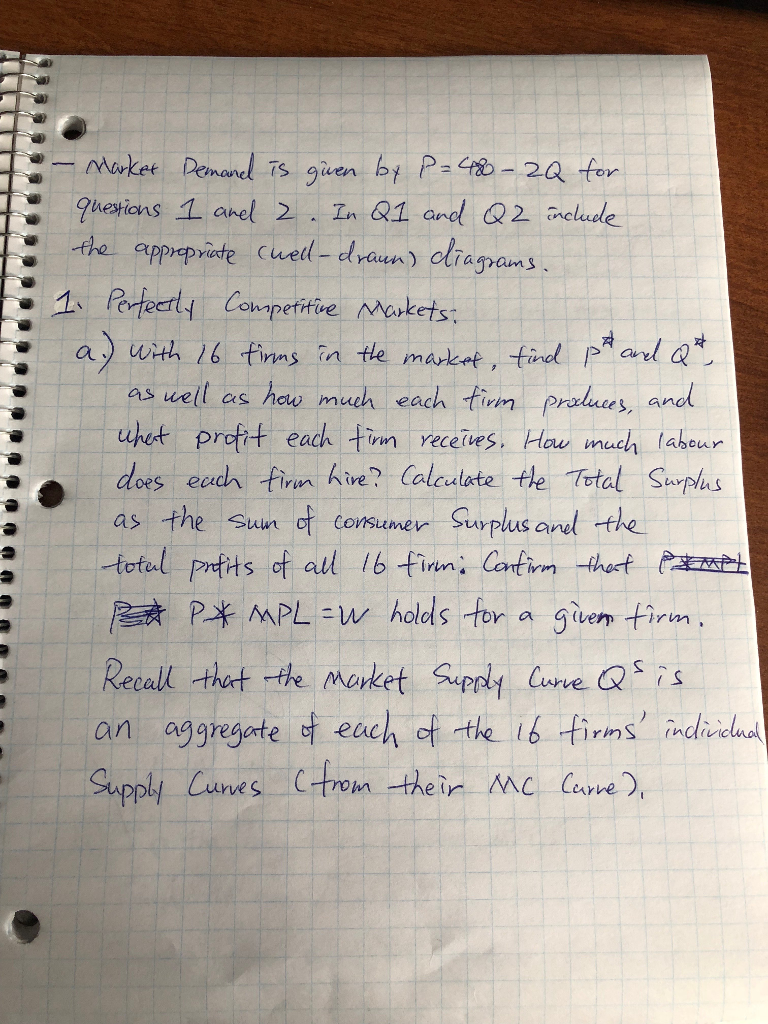 - Market Demand is given by P = 480 - 2Q for
questions 1 and 2. In Q1 and Q2 include
the appropriate (well-drawn) diagrams.
1. Perfectly Competitive Markets:
a.) With 16 firms in the market, find P* and Q*,
as well as how much each firm produces, and
what profit each firm receives. How much labour
does each firm hire? Calculate the Total Surplus
as the sum of consumer Surplus and the
total profits of all 16 firm: Confirm that
P * MPL = W holds for a given firm.
Recall that the Market Supply Curve Qˢ is
an aggregate of each of the 16 firms' individual
Supply Curves (from their MC Curve).